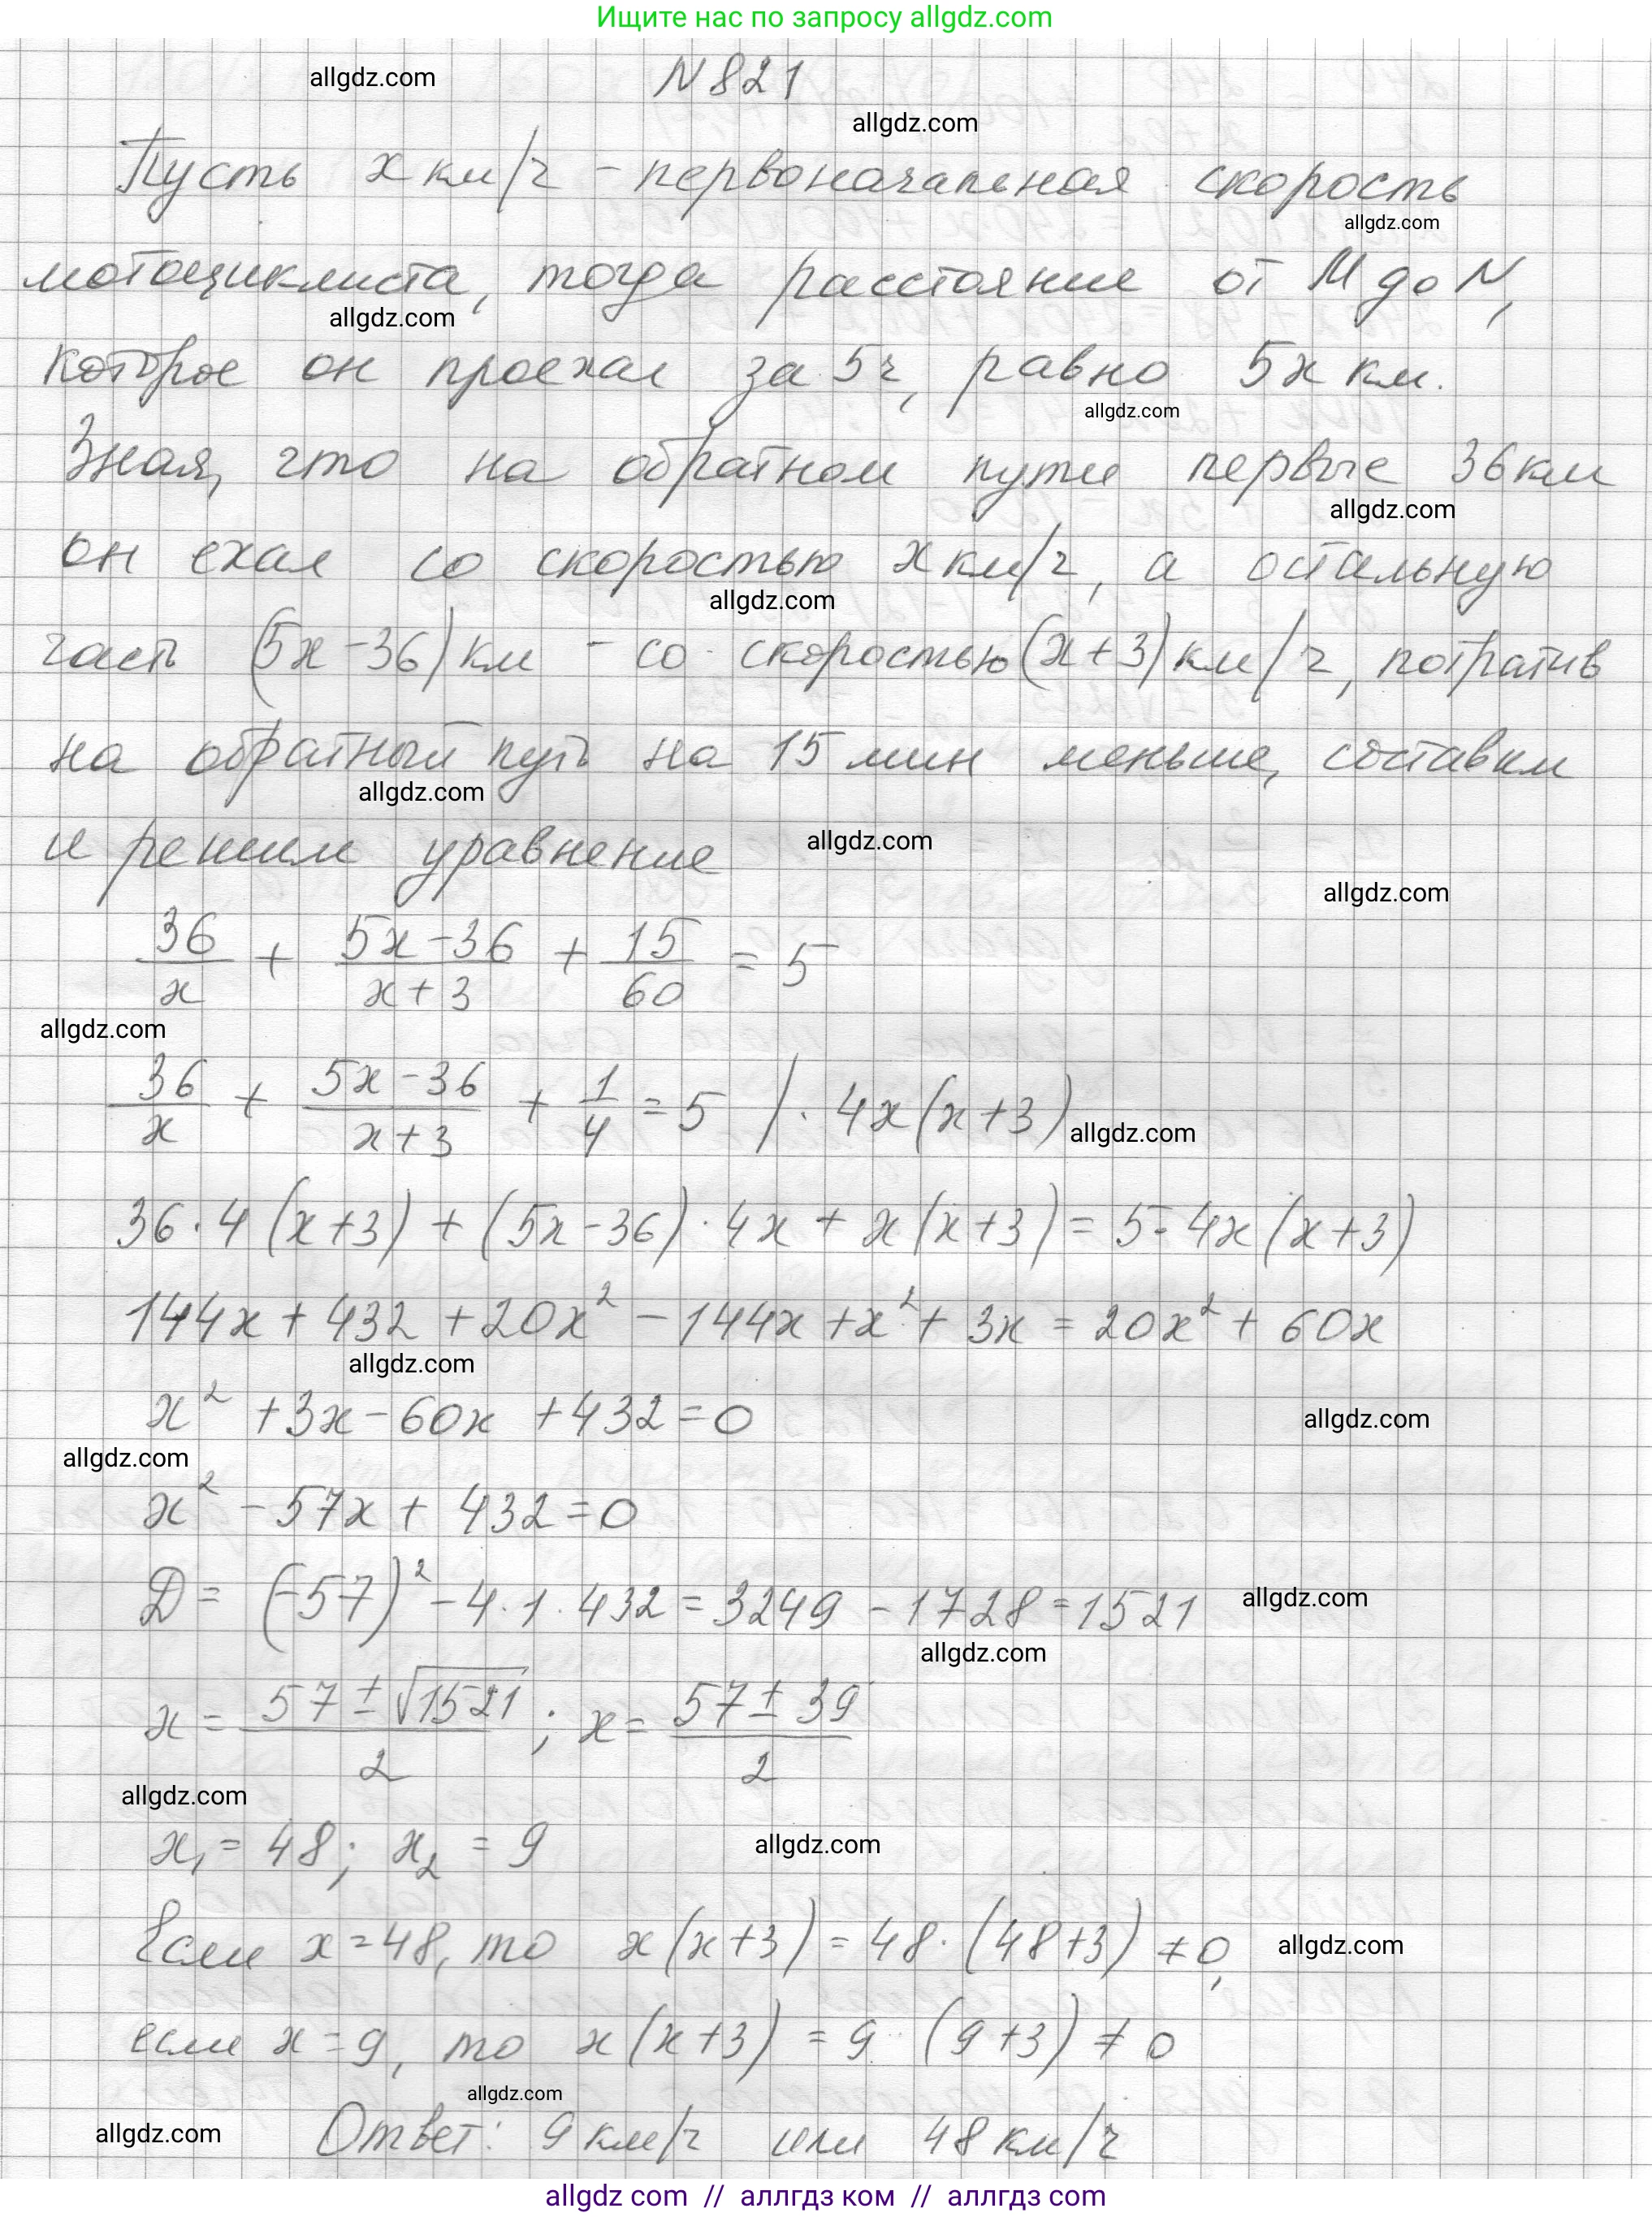 Ищите нас по запросу allgdz.com
allgdz.com
N 821
allgdz.com
Пусть x км/ч - первоначальная скорость
allgdz.com
мотоциклиста, тогда расстояние от M до N,
allgdz.com
которое он проехал за 5ч, равно 5x км.
allgdz.com
Зная, что на обратном пути первые 36 км
allgdz.com
он ехал со скоростью x км/ч, а остальную
allgdz.com
часть (5x-36) км - со скоростью (x+3) км/ч, потратив
на обратный путь на 15 мин меньше, составим
allgdz.com
и решим уравнение
allgdz.com
allgdz.com
36/x + (5x-36)/(x+3) + 15/60 = 5
allgdz.com
36/x + (5x-36)/(x+3) + 1/4 = 5 /· 4x(x+3)
allgdz.com
36·4(x+3) + (5x-36)·4x + x(x+3) = 5·4x(x+3)
144x + 432 + 20x² - 144x + x² + 3x = 20x² + 60x
allgdz.com
x² + 3x - 60x + 432 = 0
allgdz.com
allgdz.com
x² - 57x + 432 = 0
D = (-57)² - 4·1·432 = 3249 - 1728 = 1521
allgdz.com
allgdz.com
x = (57 ± √1521)/2 ; x = (57 ± 39)/2
allgdz.com
x₁ = 48; x₂ = 9
allgdz.com
Если x = 48, то x(x+3) = 48·(48+3) ≠ 0,
allgdz.com
если x = 9, то x(x+3) = 9·(9+3) ≠ 0
allgdz.com
allgdz.com
Ответ: 9 км/ч или 48 км/ч
allgdz com // аллгдз ком // аллгдз com